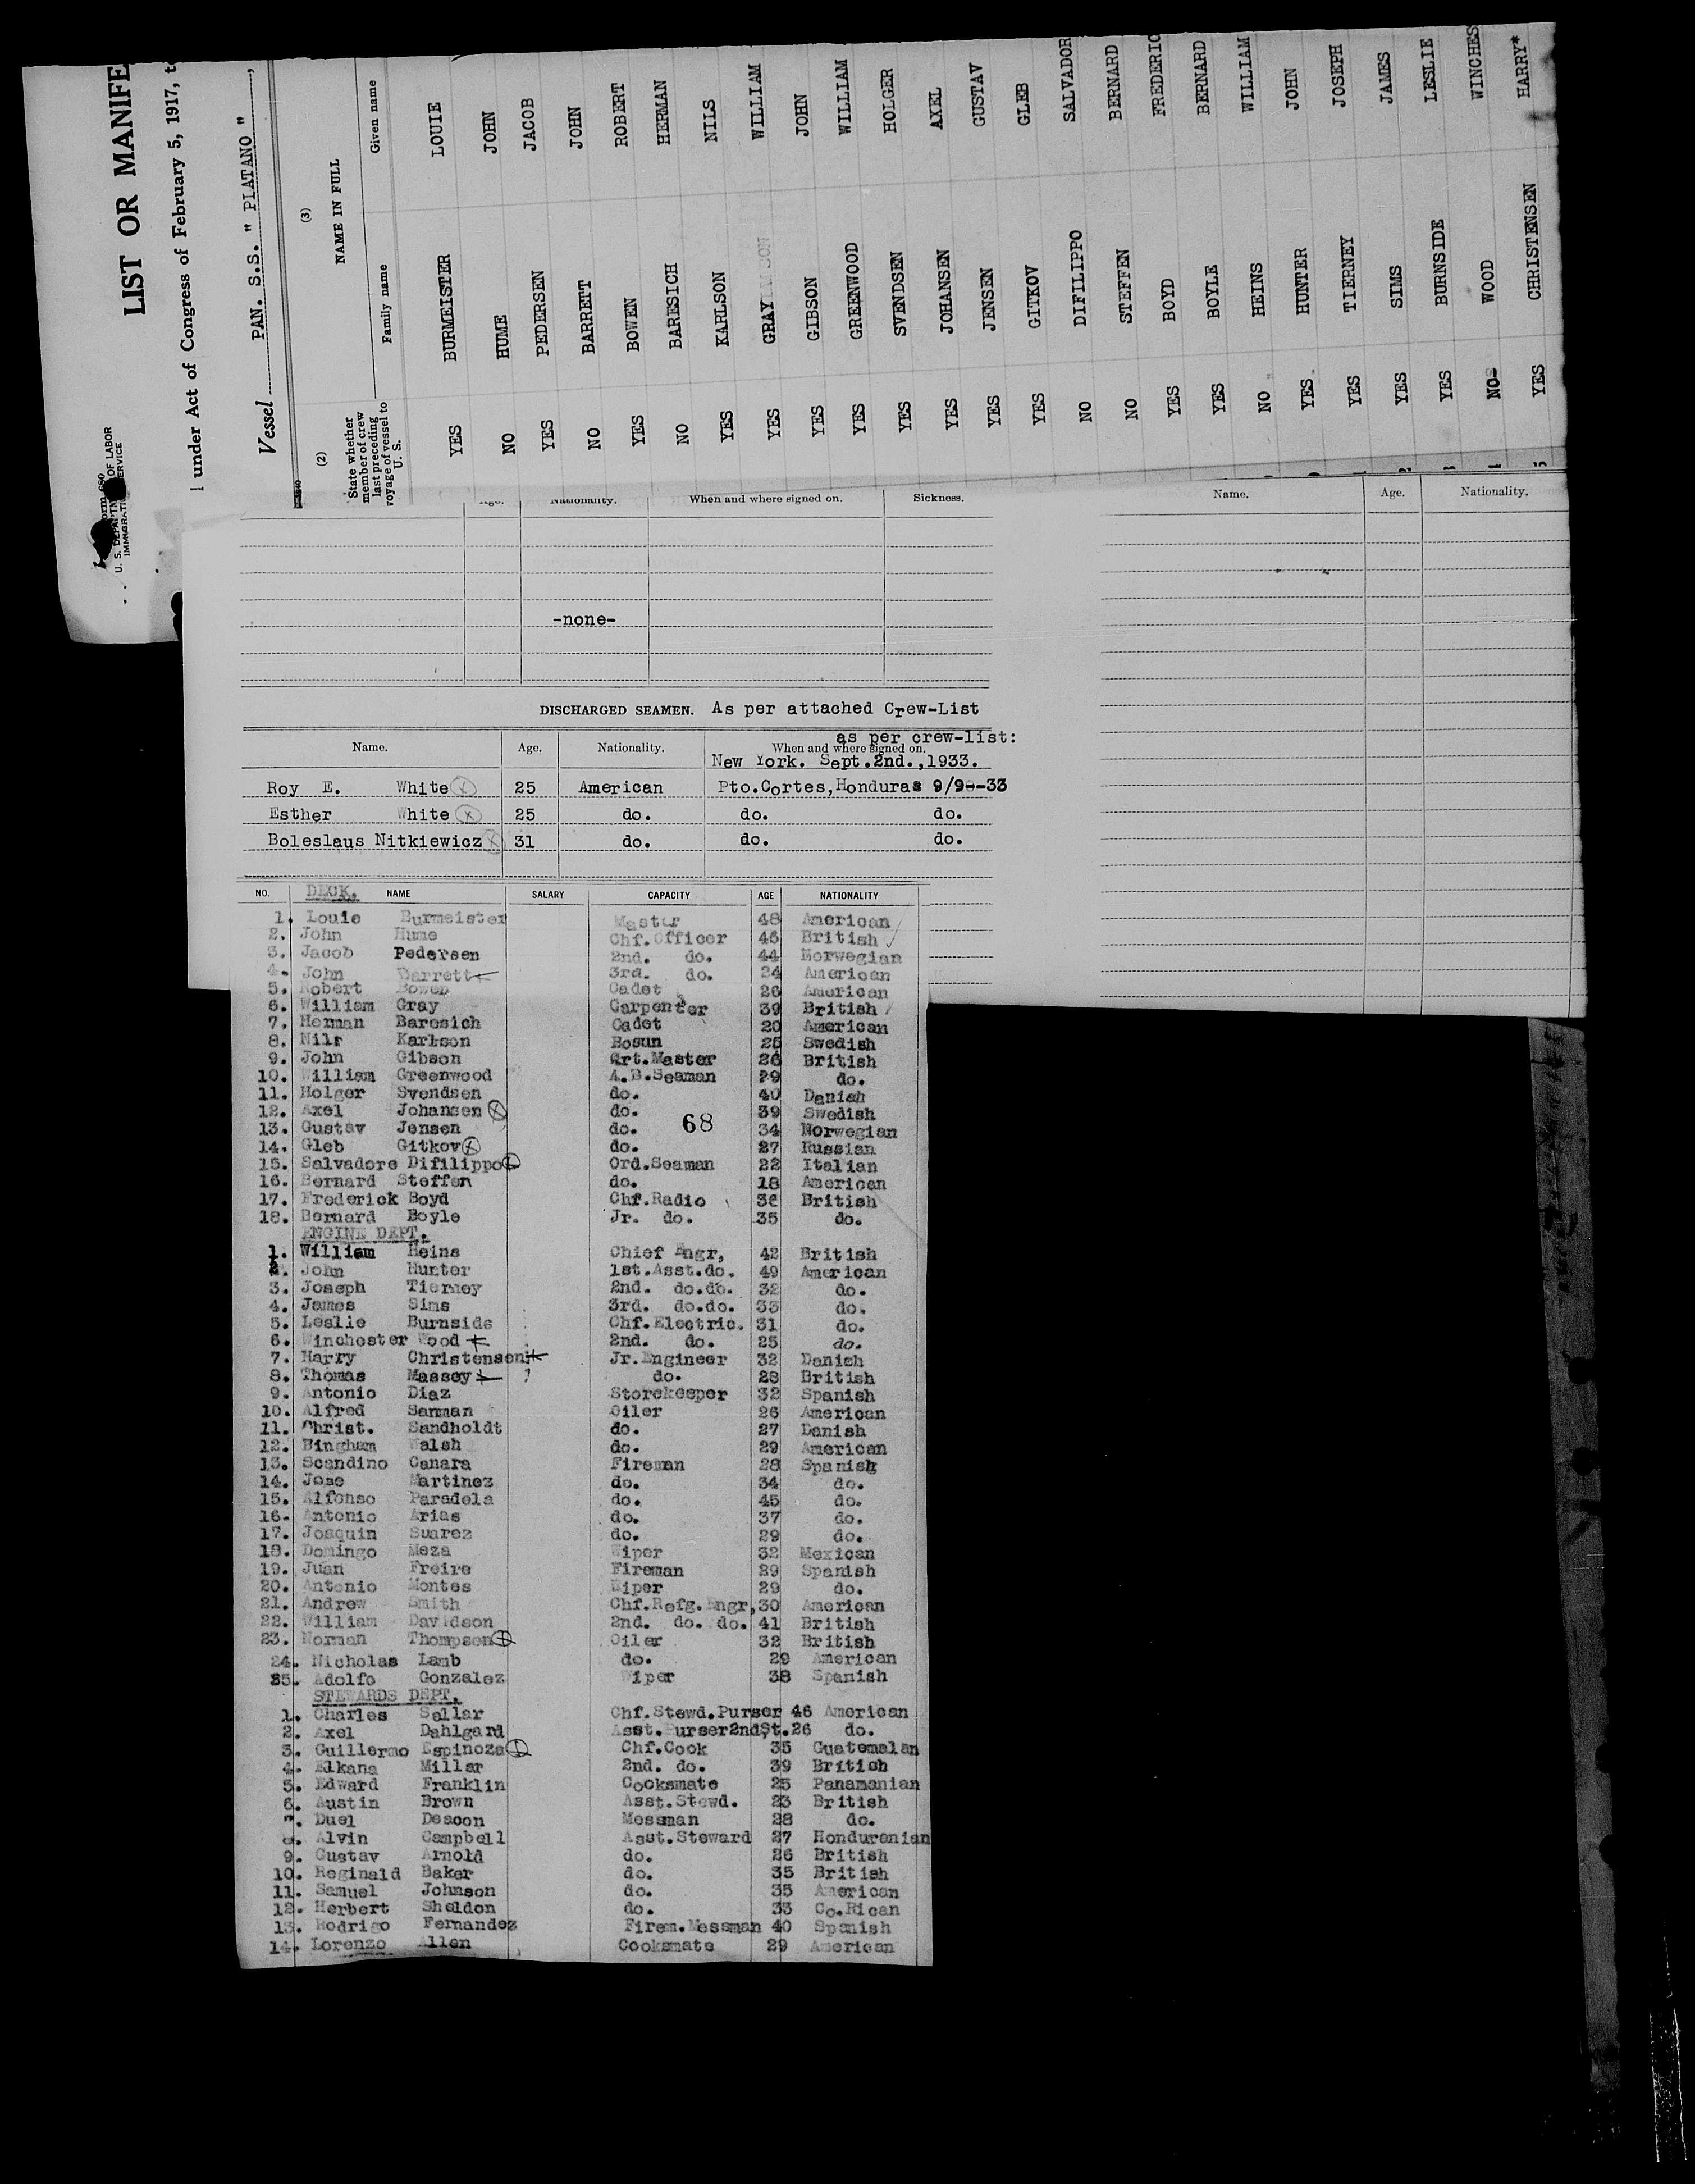 Form 680
U. S. DEPARTMENT OF LABOR
IMMIGRATION SERVICE
LIST OR MANIFE
under Act of Congress of February 5, 1917, to
Vessel PAN. S.S. " PLATANO " ,
(2) (3)
State whether member of crew last preceding voyage of vessel to U. S.
NAME IN FULL
Family name Given name
YES BURMEISTER LOUIE
NO HUME JOHN
YES PEDERSEN JACOB
NO BARRETT JOHN
YES BOWEN ROBERT
NO BARESICH HERMAN
YES KARLSON NILS
YES GRAY WILLIAM
YES GIBSON JOHN
YES GREENWOOD WILLIAM
YES SVENDSEN HOLGER
YES JOHANSEN AXEL
YES JENSEN GUSTAV
YES GITKOV GLEB
NO DIFILIPPO SALVADOR
NO STEFFEN BERNARD
YES BOYD FREDERIC
YES BOYLE BERNARD
NO HEINS WILLIAM
YES HUNTER JOHN
YES TIERNEY JOSEPH
YES SIMS JAMES
YES BURNSIDE LESLIE
NO WOOD WINCHES
YES CHRISTENSEN HARRY*
Age. Nationality. When and where signed on. Sickness. Name. Age. Nationality.
-none-
DISCHARGED SEAMEN. As per attached Crew-List
as per crew-list:
Name. Age. Nationality. When and where signed on.
New York. Sept.2nd.,1933.
Roy E. White 25 American Pto.Cortes,Honduras 9/9-33
Esther White 25 do. do. do.
Boleslaus Nitkiewicz 31 do. do. do.
NO. DECK. NAME SALARY CAPACITY AGE NATIONALITY
1. Louie Burmeister Master 48 American
2. John Hume Chf.Officer 46 British
3. Jacob Pedersen 2nd. do. 44 Norwegian
4. John Barrett 3rd. do. 24 American
5. Robert Bowen Cadet 26 American
6. William Gray Carpenter 39 British
7. Herman Baresich Cadet 20 American
8. Nils Karlson Bosun 25 Swedish
9. John Gibson Qrt.Master 26 British
10. William Greenwood A.B.Seaman 29 do.
11. Holger Svendsen do. 40 Danish
12. Axel Johansen do. 39 Swedish
68
13. Gustav Jensen do. 34 Norwegian
14. Gleb Gitkov do. 27 Russian
15. Salvadore Difilippo Ord.Seaman 22 Italian
16. Bernard Steffen do. 18 American
17. Frederick Boyd Chf.Radio 36 British
18. Bernard Boyle Jr. do. 35 do.
ENGINE DEPT.
1. William Heins Chief Engr, 42 British
2. John Hunter 1st.Asst.do. 49 American
3. Joseph Tierney 2nd. do.do. 32 do.
4. James Sims 3rd. do.do. 33 do.
5. Leslie Burnside Chf.Electric. 31 do.
6. Winchester Wood 2nd. do. 25 do.
7. Harry Christensen Jr.Engineer 32 Danish
8. Thomas Massey do. 28 British
9. Antonio Diaz Storekeeper 32 Spanish
10. Alfred Sanman Oiler 26 American
11. Christ. Sandholdt do. 27 Danish
12. Bingham Walsh do. 29 American
13. Scandino Canara Fireman 28 Spanish
14. Jose Martinez do. 34 do.
15. Alfonso Paradela do. 45 do.
16. Antonio Arias do. 37 do.
17. Joaquin Suarez do. 29 do.
18. Domingo Meza Wiper 32 Mexican
19. Juan Freire Fireman 29 Spanish
20. Antonio Montes Wiper 29 do.
21. Andrew Smith Chf.Refg.Engr, 30 American
22. William Davidson 2nd. do. do. 41 British
23. Norman Thompson Oiler 32 British
24. Nicholas Lamb do. 29 American
25. Adolfo Gonzalez Wiper 38 Spanish
STEWARDS DEPT.
1. Charles Sellar Chf.Stewd.Purser 46 American
2. Axel Dahlgard Asst.Purser2ndSt. 26 do.
3. Guillermo Espinoza Chf.Cook 35 Guatemalan
4. Elkana Millar 2nd. do. 39 British
5. Edward Franklin Cooksmate 25 Panamanian
6. Austin Brown Asst.Stewd. 23 British
7. Duel Deacon Messman 28 do.
8. Alvin Campbell Asst.Steward 27 Honduranian
9. Gustav Arnold do. 26 British
10. Reginald Baker do. 35 British
11. Samuel Johnson do. 35 American
12. Herbert Sheldon do. 33 Co.Rican
13. Rodrigo Fernandez Firem.Messman 40 Spanish
14. Lorenzo Allen Cooksmate 29 American